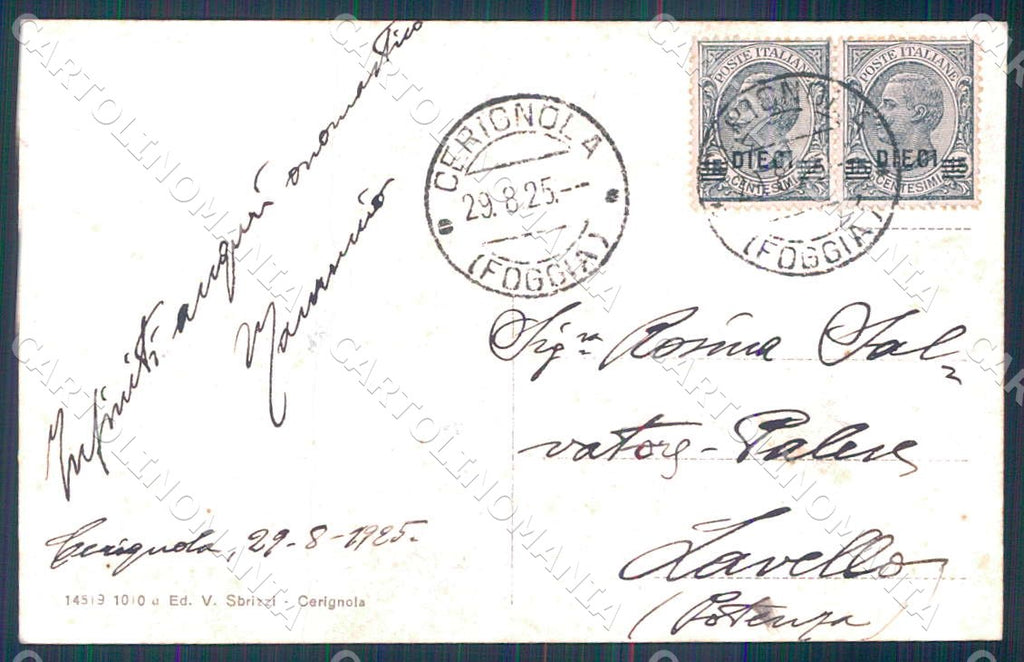 Infiniti auguri onomastico
Cerignola, 29-8-1925.
14519 1010 a Ed. V. Sbrizzi - Cerignola
CERIGNOLA
29.8.25.---
(FOGGIA)
POSTE ITALIANE
DIECI
CENTESIMI
POSTE ITALIANE
DIECI
CENTESIMI
CERIGNOLA
(FOGGIA)
Sig.ra Rosina Sal=
vatore - Palese
Lavello
(Potenza)
CARTOLINOMANIA